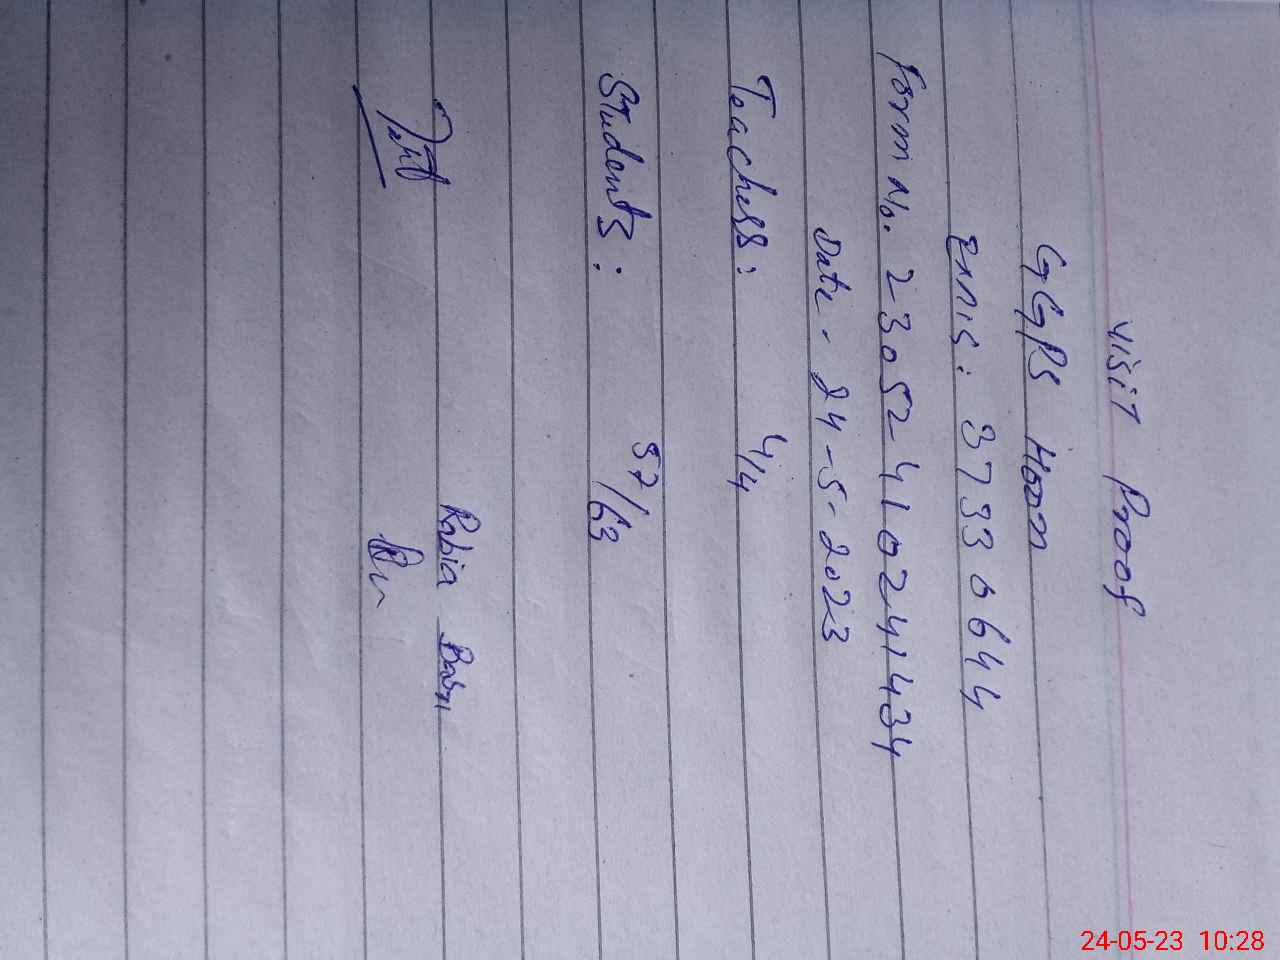 Visit Proof
GGPS Hoon
EMIS: 37330644
Form No. 23052410241434
Date - 24-5-2023
Teachers: 4/4
Students: 57/63
Rabia
24-05-23 10:28